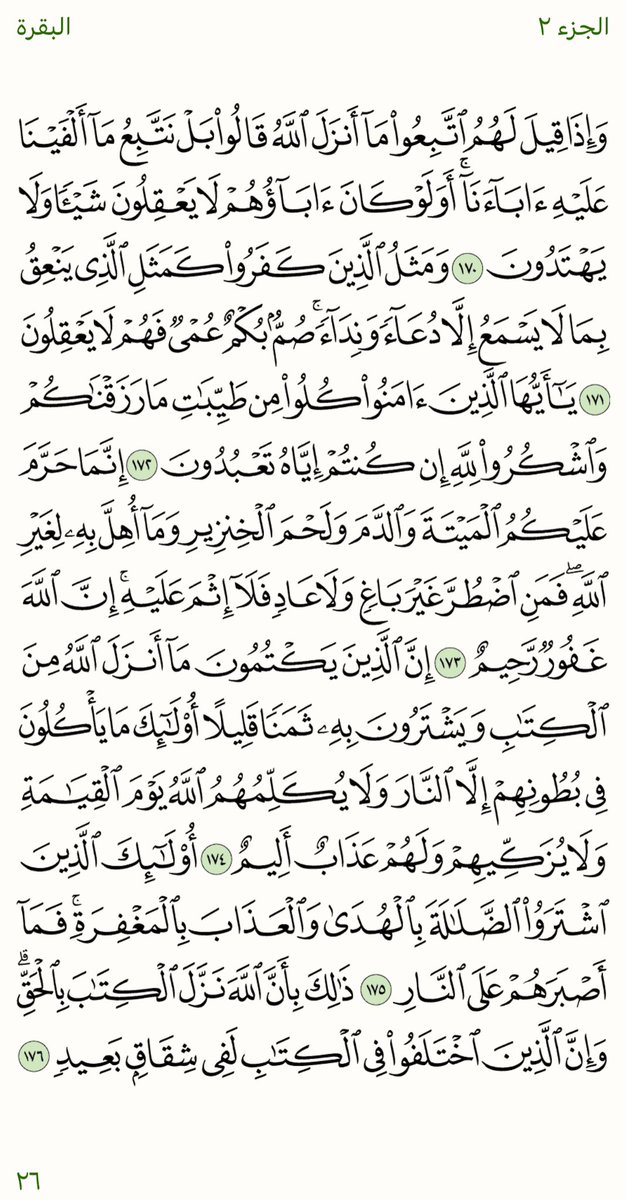 الجزء ٢
البقرة
وَإِذَا قِيلَ لَهُمُ ٱتَّبِعُوا۟ مَآ أَنزَلَ ٱللَّهُ قَالُوا۟ بَلْ نَتَّبِعُ مَآ أَلْفَيْنَا
عَلَيْهِ ءَابَآءَنَآ ۚ أَوَلَوْ كَانَ ءَابَآؤُهُمْ لَا يَعْقِلُونَ شَيْـًٔا وَلَا
يَهْتَدُونَ ١٧٠ وَمَثَلُ ٱلَّذِينَ كَفَرُوا۟ كَمَثَلِ ٱلَّذِى يَنْعِقُ
بِمَا لَا يَسْمَعُ إِلَّا دُعَآءً وَنِدَآءً ۚ صُمٌّۢ بُكْمٌ عُمْىٌ فَهُمْ لَا يَعْقِلُونَ
١٧١ يَـٰٓأَيُّهَا ٱلَّذِينَ ءَامَنُوا۟ كُلُوا۟ مِن طَيِّبَـٰتِ مَا رَزَقْنَـٰكُمْ
وَٱشْكُرُوا۟ لِلَّهِ إِن كُنتُمْ إِيَّاهُ تَعْبُدُونَ ١٧٢ إِنَّمَا حَرَّمَ
عَلَيْكُمُ ٱلْمَيْتَةَ وَٱلدَّمَ وَلَحْمَ ٱلْخِنزِيرِ وَمَآ أُهِلَّ بِهِۦ لِغَيْرِ
ٱللَّهِ ۖ فَمَنِ ٱضْطُرَّ غَيْرَ بَاغٍ وَلَا عَادٍ فَلَآ إِثْمَ عَلَيْهِ ۚ إِنَّ ٱللَّهَ
غَفُورٌ رَّحِيمٌ ١٧٣ إِنَّ ٱلَّذِينَ يَكْتُمُونَ مَآ أَنزَلَ ٱللَّهُ مِنَ
ٱلْكِتَـٰبِ وَيَشْتَرُونَ بِهِۦ ثَمَنًا قَلِيلًا أُو۟لَـٰٓئِكَ مَا يَأْكُلُونَ
فِى بُطُونِهِمْ إِلَّا ٱلنَّارَ وَلَا يُكَلِّمُهُمُ ٱللَّهُ يَوْمَ ٱلْقِيَـٰمَةِ
وَلَا يُزَكِّيهِمْ وَلَهُمْ عَذَابٌ أَلِيمٌ ١٧٤ أُو۟لَـٰٓئِكَ ٱلَّذِينَ
ٱشْتَرَوُا۟ ٱلضَّلَـٰلَةَ بِٱلْهُدَىٰ وَٱلْعَذَابَ بِٱلْمَغْفِرَةِ ۚ فَمَآ
أَصْبَرَهُمْ عَلَى ٱلنَّارِ ١٧٥ ذَٰلِكَ بِأَنَّ ٱللَّهَ نَزَّلَ ٱلْكِتَـٰبَ بِٱلْحَقِّ ۗ
وَإِنَّ ٱلَّذِينَ ٱخْتَلَفُوا۟ فِى ٱلْكِتَـٰبِ لَفِى شِقَاقٍۭ بَعِيدٍ ١٧٦
٢٦